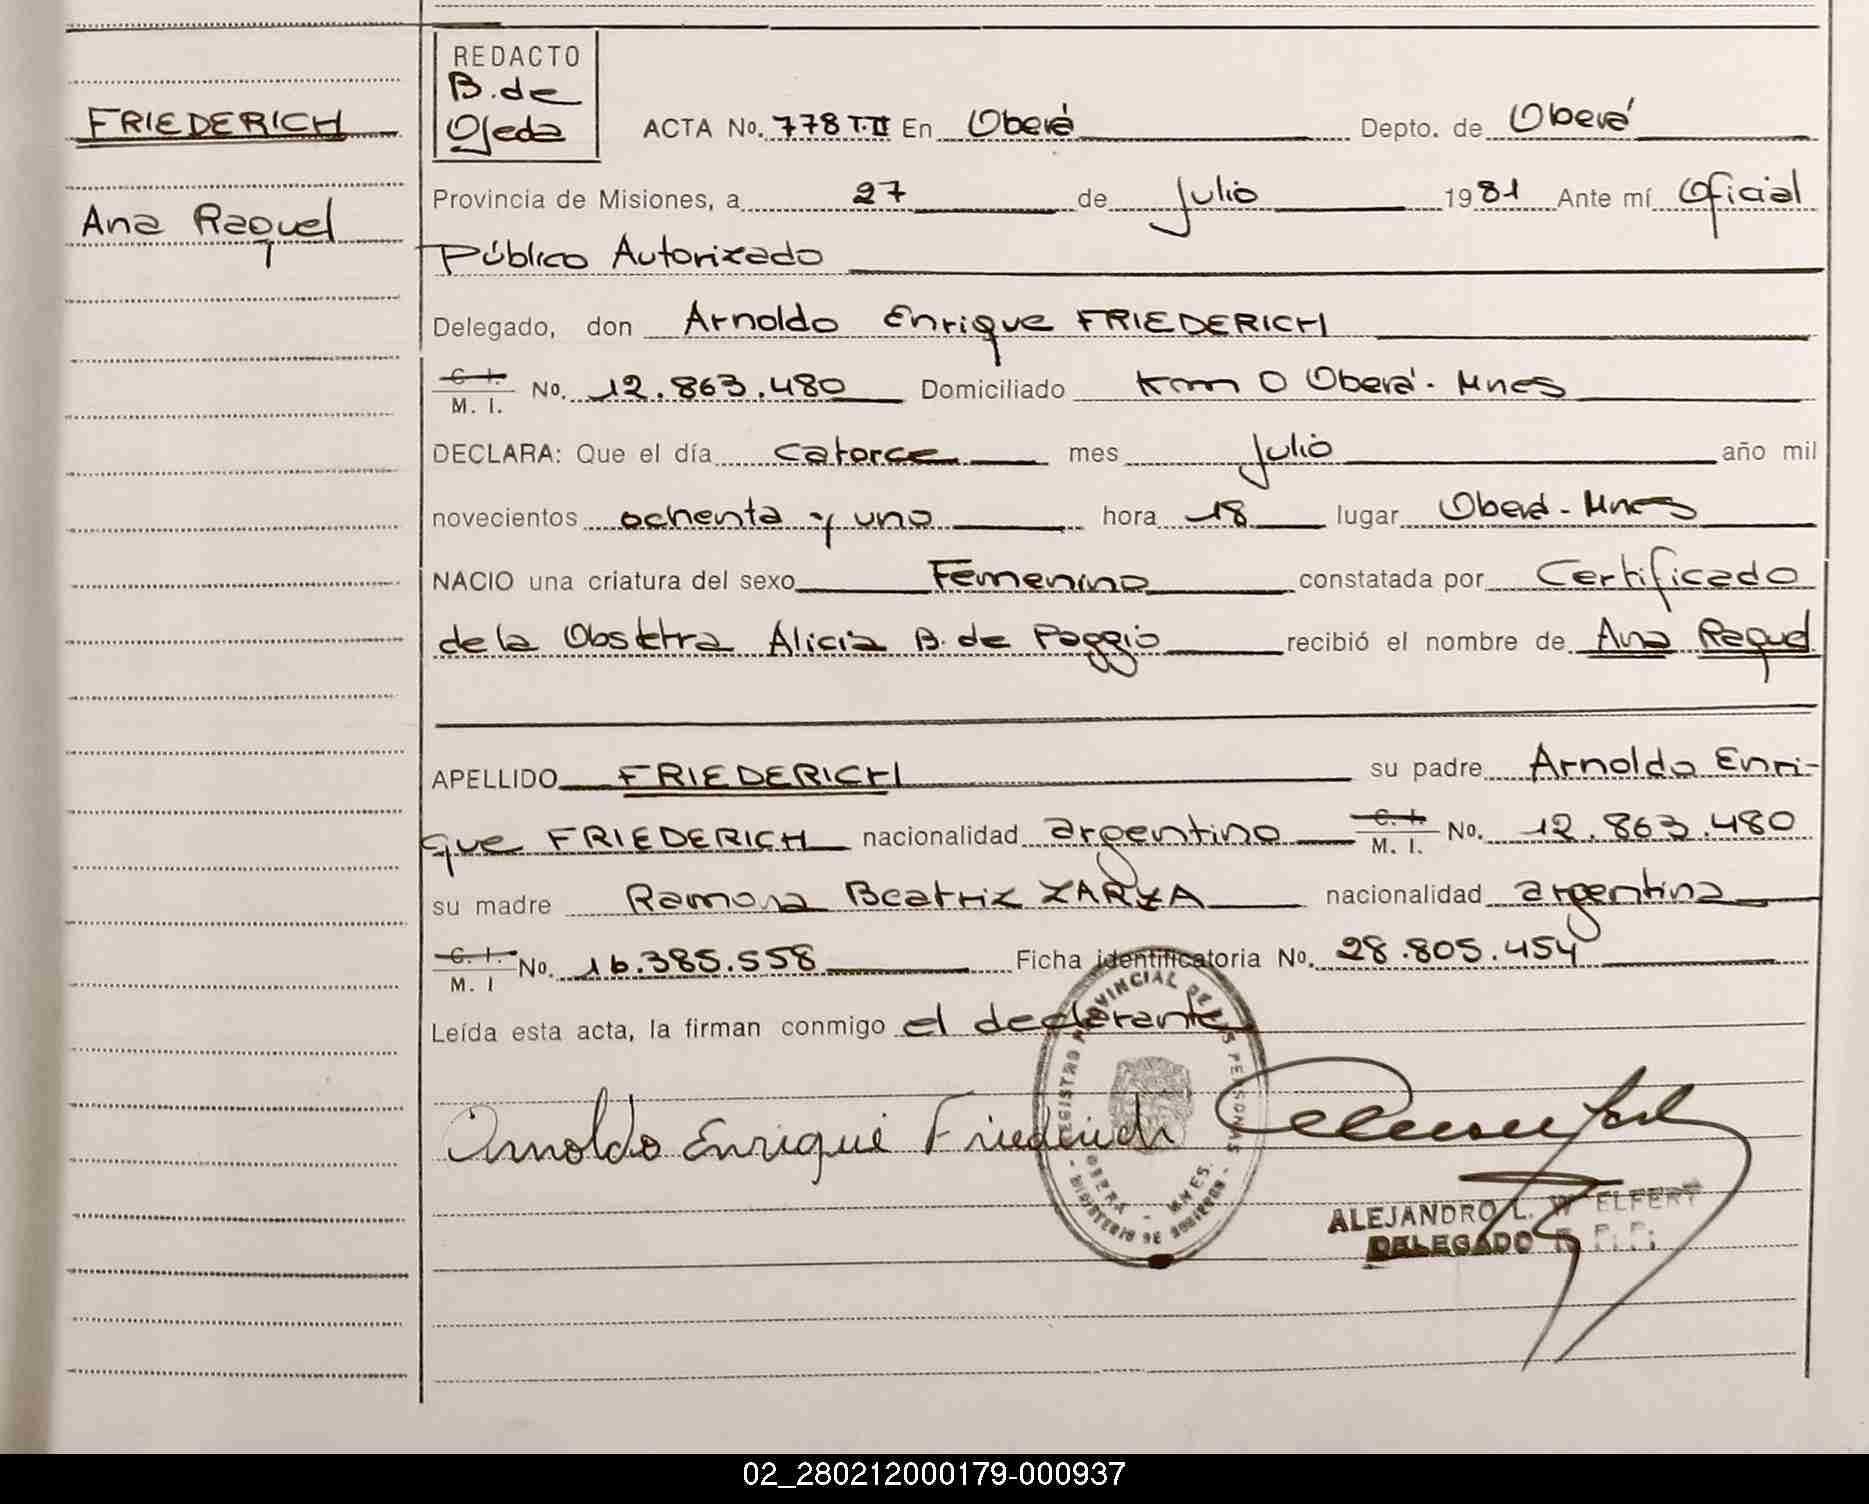 FRIEDERICH
Ana Raquel
REDACTO
B. de
Ojeda
ACTA No. 778 T.II En Oberá Depto. de Oberá
Provincia de Misiones, a 27 de Julio 1981 Ante mí Oficial
Público Autorizado
Delegado, don Arnoldo Enrique FRIEDERICH
C. I.
M. I. No. 12.863.480 Domiciliado Km 0 Oberá - Mnes
DECLARA: Que el día catorce mes Julio año mil
novecientos ochenta y uno hora 18 lugar Oberá - Mnes
NACIO una criatura del sexo Femenino constatada por Certificado
de la Obstetra Alicia B. de Poggio recibió el nombre de Ana Raquel
APELLIDO FRIEDERICH su padre Arnoldo Enri-
que FRIEDERICH nacionalidad argentino C. I. M. I. No. 12.863.480
su madre Ramona Beatriz ZARZA nacionalidad argentina
C. I.
M. I No. 16.385.558 Ficha identificatoria No. 28.805.454
Leída esta acta, la firman conmigo el declarante
Arnoldo Enrique Friederich
REGISTRO PROVINCIAL DE LAS PERSONAS
OBERA - MNES.
- MINISTERIO DE GOBIERNO -
ALEJANDRO L. WELFERT
DELEGADO R. P. P.
02_280212000179-000937